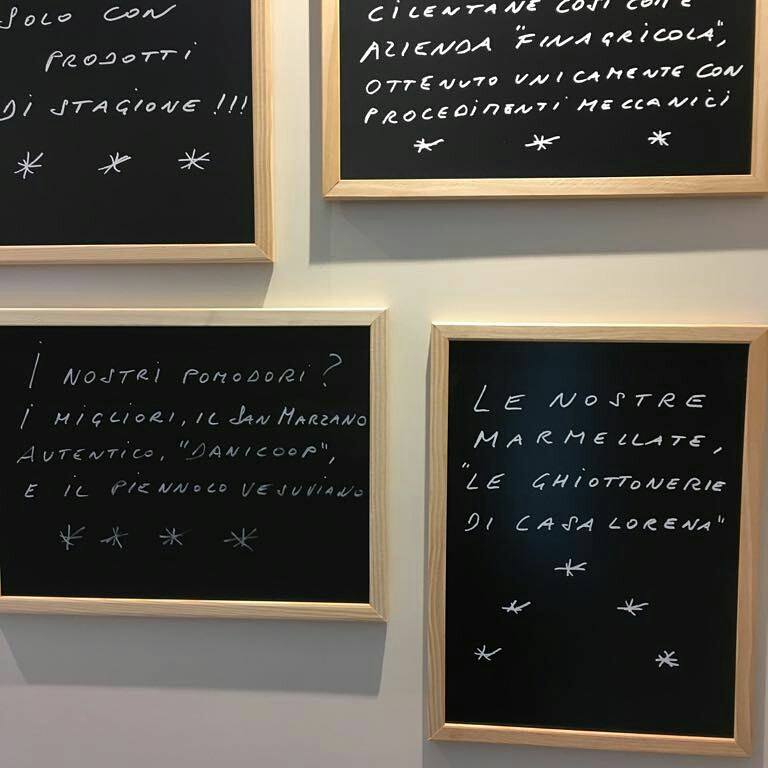 SOLO CON
PRODOTTI
DI STAGIONE !!!
CILENTANE COSÌ COME
AZIENDA "FINAGRICOLA",
OTTENUTO UNICAMENTE CON
PROCEDIMENTI MECCANICI
I NOSTRI POMODORI?
I MIGLIORI, IL SAN MARZANO
AUTENTICO, "DANICOOP",
E IL PIENNOLO VESUVIANO
LE NOSTRE
MARMELLATE,
"LE GHIOTTONERIE
DI CASA LORENA"